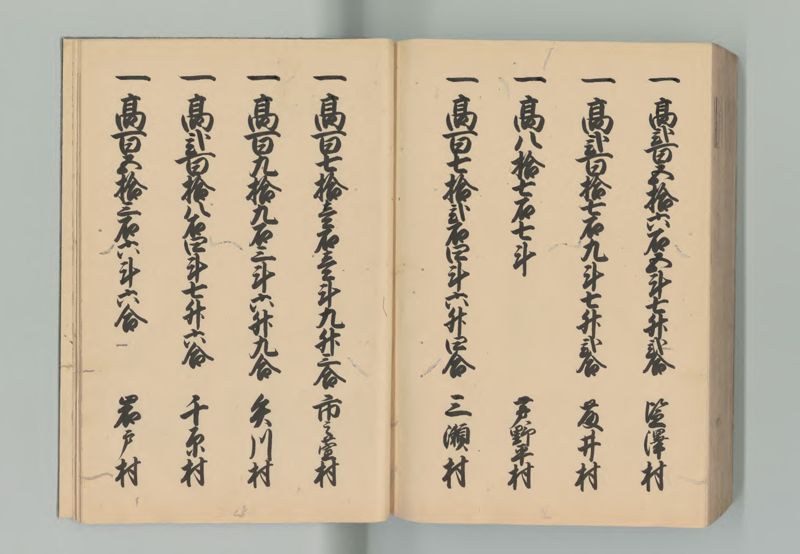 一 高弐百五拾六石五斗七升弐合 笠澤村
一 高弐百拾七石九斗七升弐合 藤井村
一 高八拾七石七斗 芦野平村
一 高百七拾弐石四斗六升四合 三瀬村
一 高百七拾壱石壱斗九升三合 市之萱村
一 高百九拾九石三斗六升九合 矢川村
一 高弐百拾八石四斗七升六合 千原村
一 高百五拾三石六斗六合 岩戸村